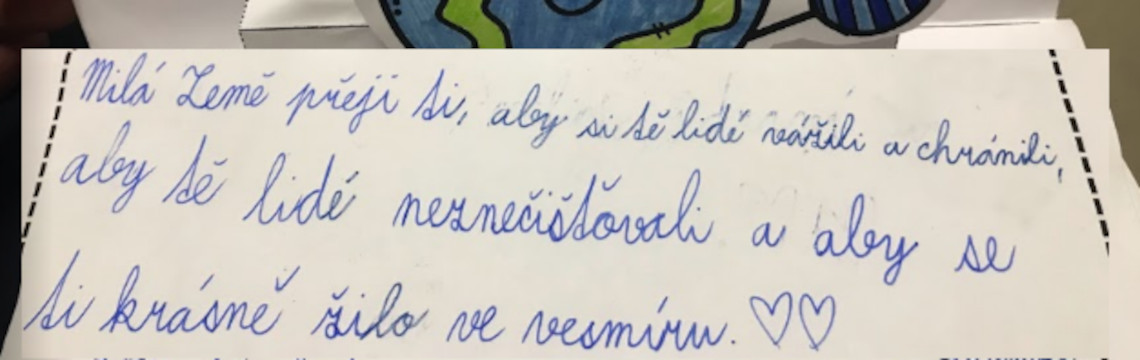 Milá Země přeji ti, aby si tě lidé vážili a chránili,
aby tě lidé neznečišťovali a aby se
ti krásně žilo ve vesmíru. ♡♡